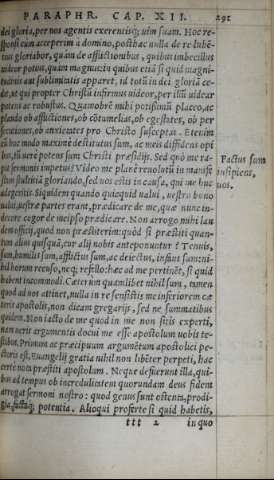 PARAPHR. CAP. XII. 291
dei gloria, per nos agentis exerentisq; uim suam. Hoc re-
sponsi cum acceperim à domino, posthac nulla de re liben-
tius gloriabor, quàm de afflictionibus, quibus imbecillus
uideor potius, quàm magnus: in quibus etiã si quid magni-
tudinis aut sublimitatis apparet, id totũ in dei gloriã ce-
dit, at qui propter Christũ infirmus uideor, per illũ uidear
potens ac robustus. Quamobrẽ mihi potissimũ placeo, ac
plaudo ob afflictiones, ob cõtumelias, ob egestates, ob per
secutiones, ob anxietates pro Christo susceptas. Etenim
cũ hoc modo maximè destitutus sum, ac meis diffidens opi
bus, tũ uerè potens sum Christi præsidijs. Sed quò me ra-
puit sermonis impetus? Video me planè reuolutũ in manife
stam stultitiã gloriandi, sed uos estis in causa, qui me huc
adegistis. Siquidem quando quicquid ualui, uestro bono
ualui, uestræ partes erant, prædicare de me, quæ nunc in-
decore cogor de meipso prædicare. Non arrogo mihi lau
dem officij, quod non præstiterim: quòd si præstiti quan-
tum alius quisquã, cur alij nobis anteponuntur? Tenuis,
sum, humilis sum, afflictus sum, ac deiectus, infans sum: ni-
hil horum recuso, neq; refello: hæc ad me pertinẽt, si quid
habent incommodi. Cæterum quamlibet nihil sum, tamen
quod ad uos attinet, nulla in re sensistis me inferiorem cæ
teris apostolis, non dicam gregarijs, sed ne summatibus
quidem. Non iacto de me quod in me non sitis experti,
nam ueris argumentis docui me esse apostolum uobis te-
stibus. Primum ac præcipuum argumẽtum apostolici pe-
ctoris est, Euangelij gratia nihil non libẽter perpeti, hæc
certè non præstiti apostolum. Neque defuerunt illa, qui-
bus ad tempus ob incredulitatem quorundam deus fidem
arrogat sermoni nostro: quod genus sunt ostenta, prodi-
gia, potentia. Alioqui proferte si quid habetis,
ttt 2 in quo
Factus sum
insipiens,
uos.